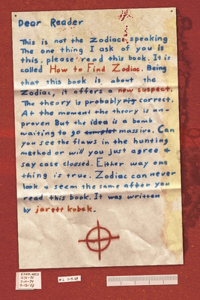 Dear Reader
This is not the Zodiac speaking
The one thing I ask of you is
this, please read this book. It is
called How to Find Zodiac. Being
that this book is about the
Zodiac, it offers a new suspect.
The theory is probably correct.
At the moment the theory is un-
proven But the idea is a bomb
waiting to go massive. Can
you see the flaws in the hunting
method or will you just agree &
say case closed. Either way one
thing is true. Zodiac can never
look & seem the same after you
read this book. It was written
by jarett kobek.